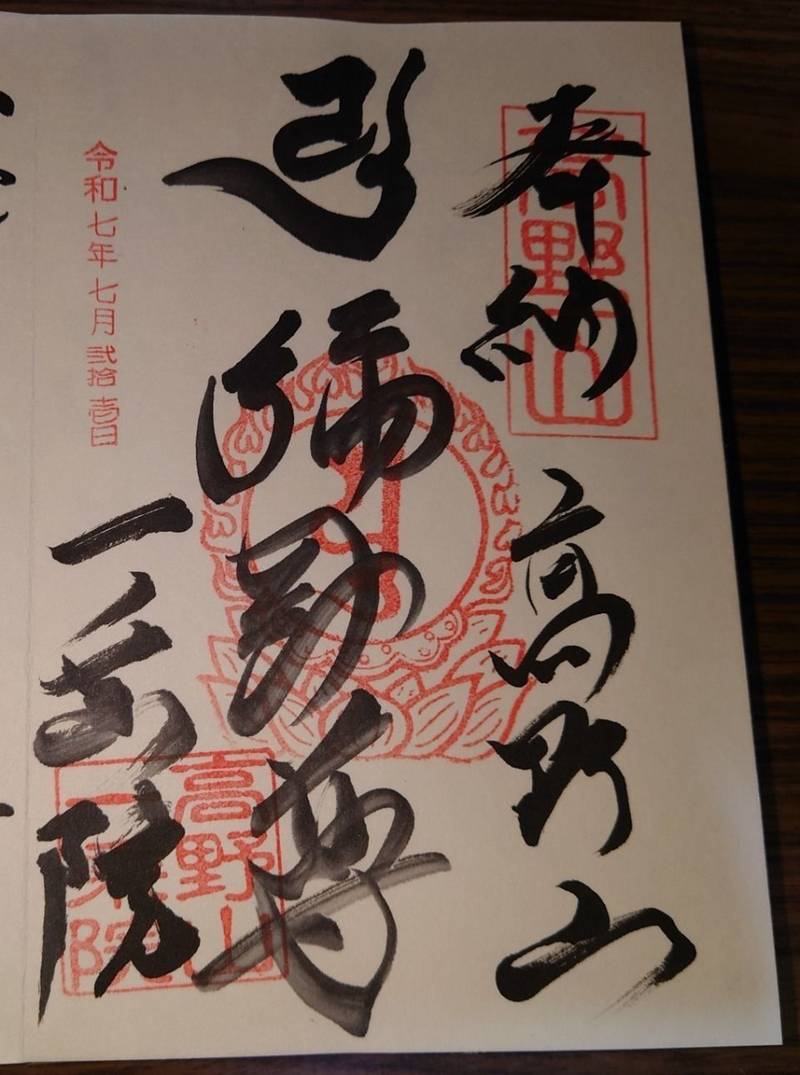 奉納 高野山
高野山
彌勒尊
一乗院
高野山
一乗院
令和七年七月弐拾壱日